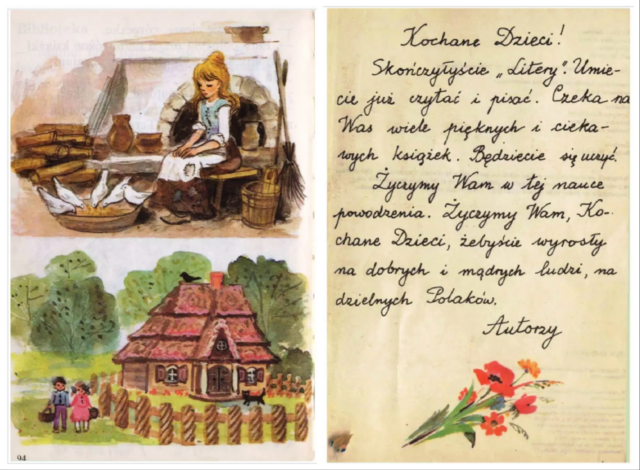 94
Kochane Dzieci!
Skończyłyście „Litery”. Umie-
cie już czytać i pisać. Czeka na
Was wiele pięknych i cieka-
wych książek. Będziecie się uczyć.
Życzymy Wam w tej nauce
powodzenia. Życzymy Wam, Ko-
chane Dzieci, żebyście wyrosły
na dobrych i mądrych ludzi, na
dzielnych Polaków.
Autorzy